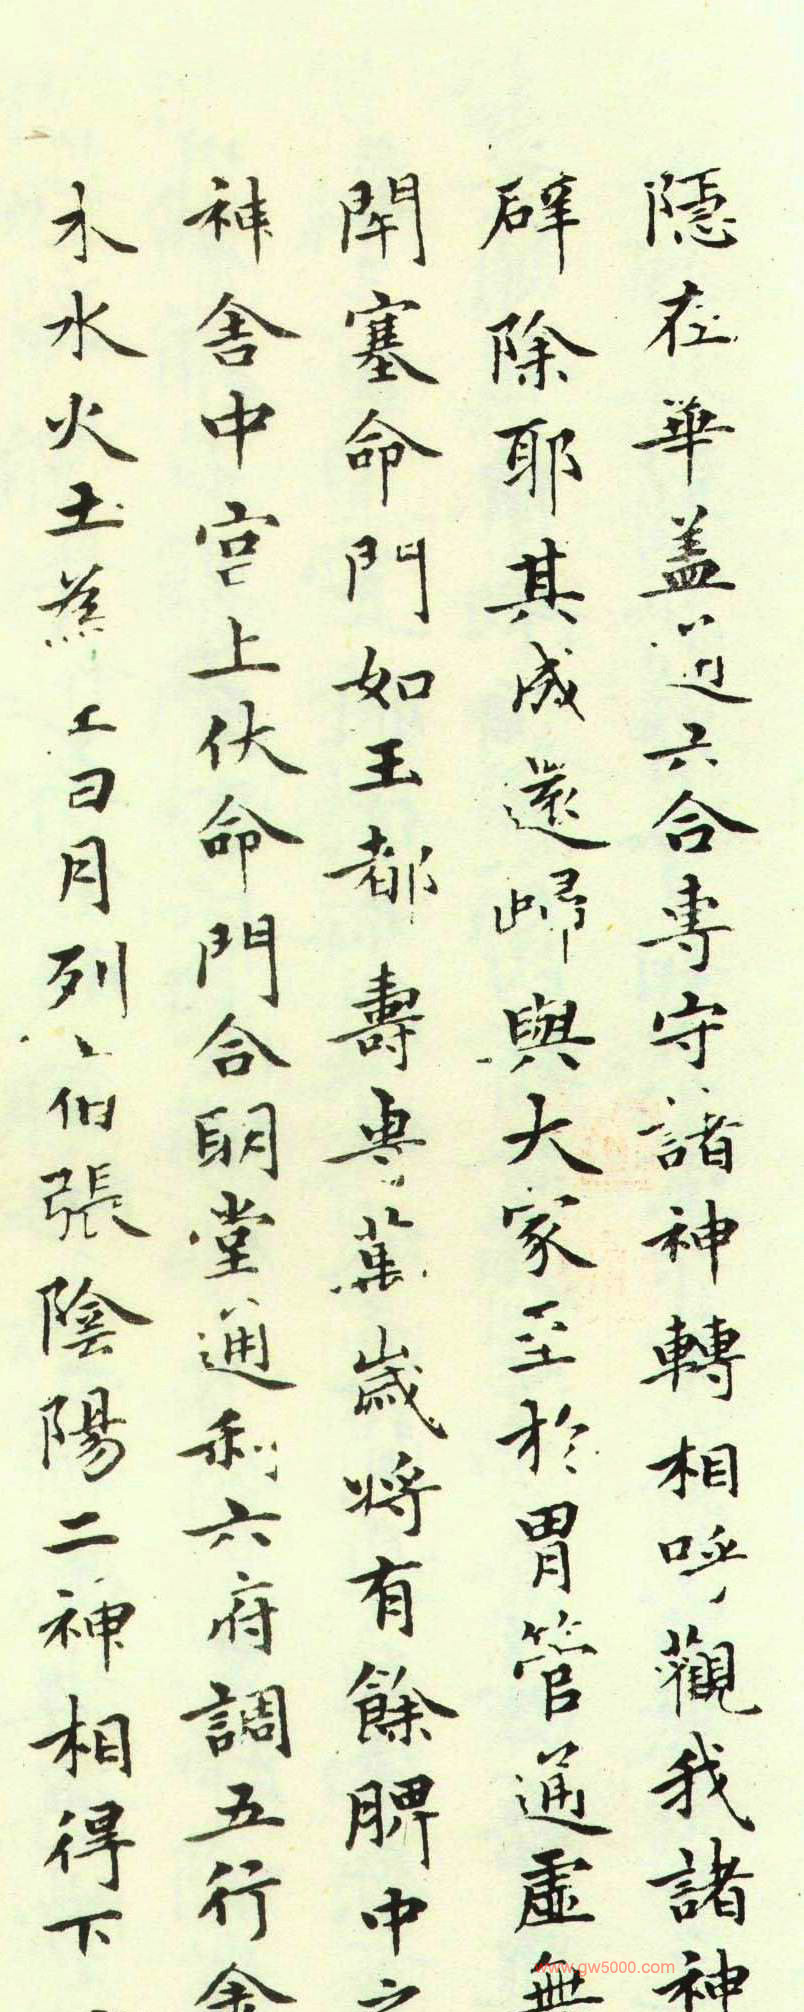 隱在華蓋通六合專守諸神轉相呼觀我諸神
辟除耶其成還歸與大家至於胃管通虛無
閉塞命門如玉都壽專萬歲將有餘脾中之
神舍中宮上伏命門合明堂通利六府調五行金
木水火土為王日月列宿張陰陽二神相得下
www.gw5000.com